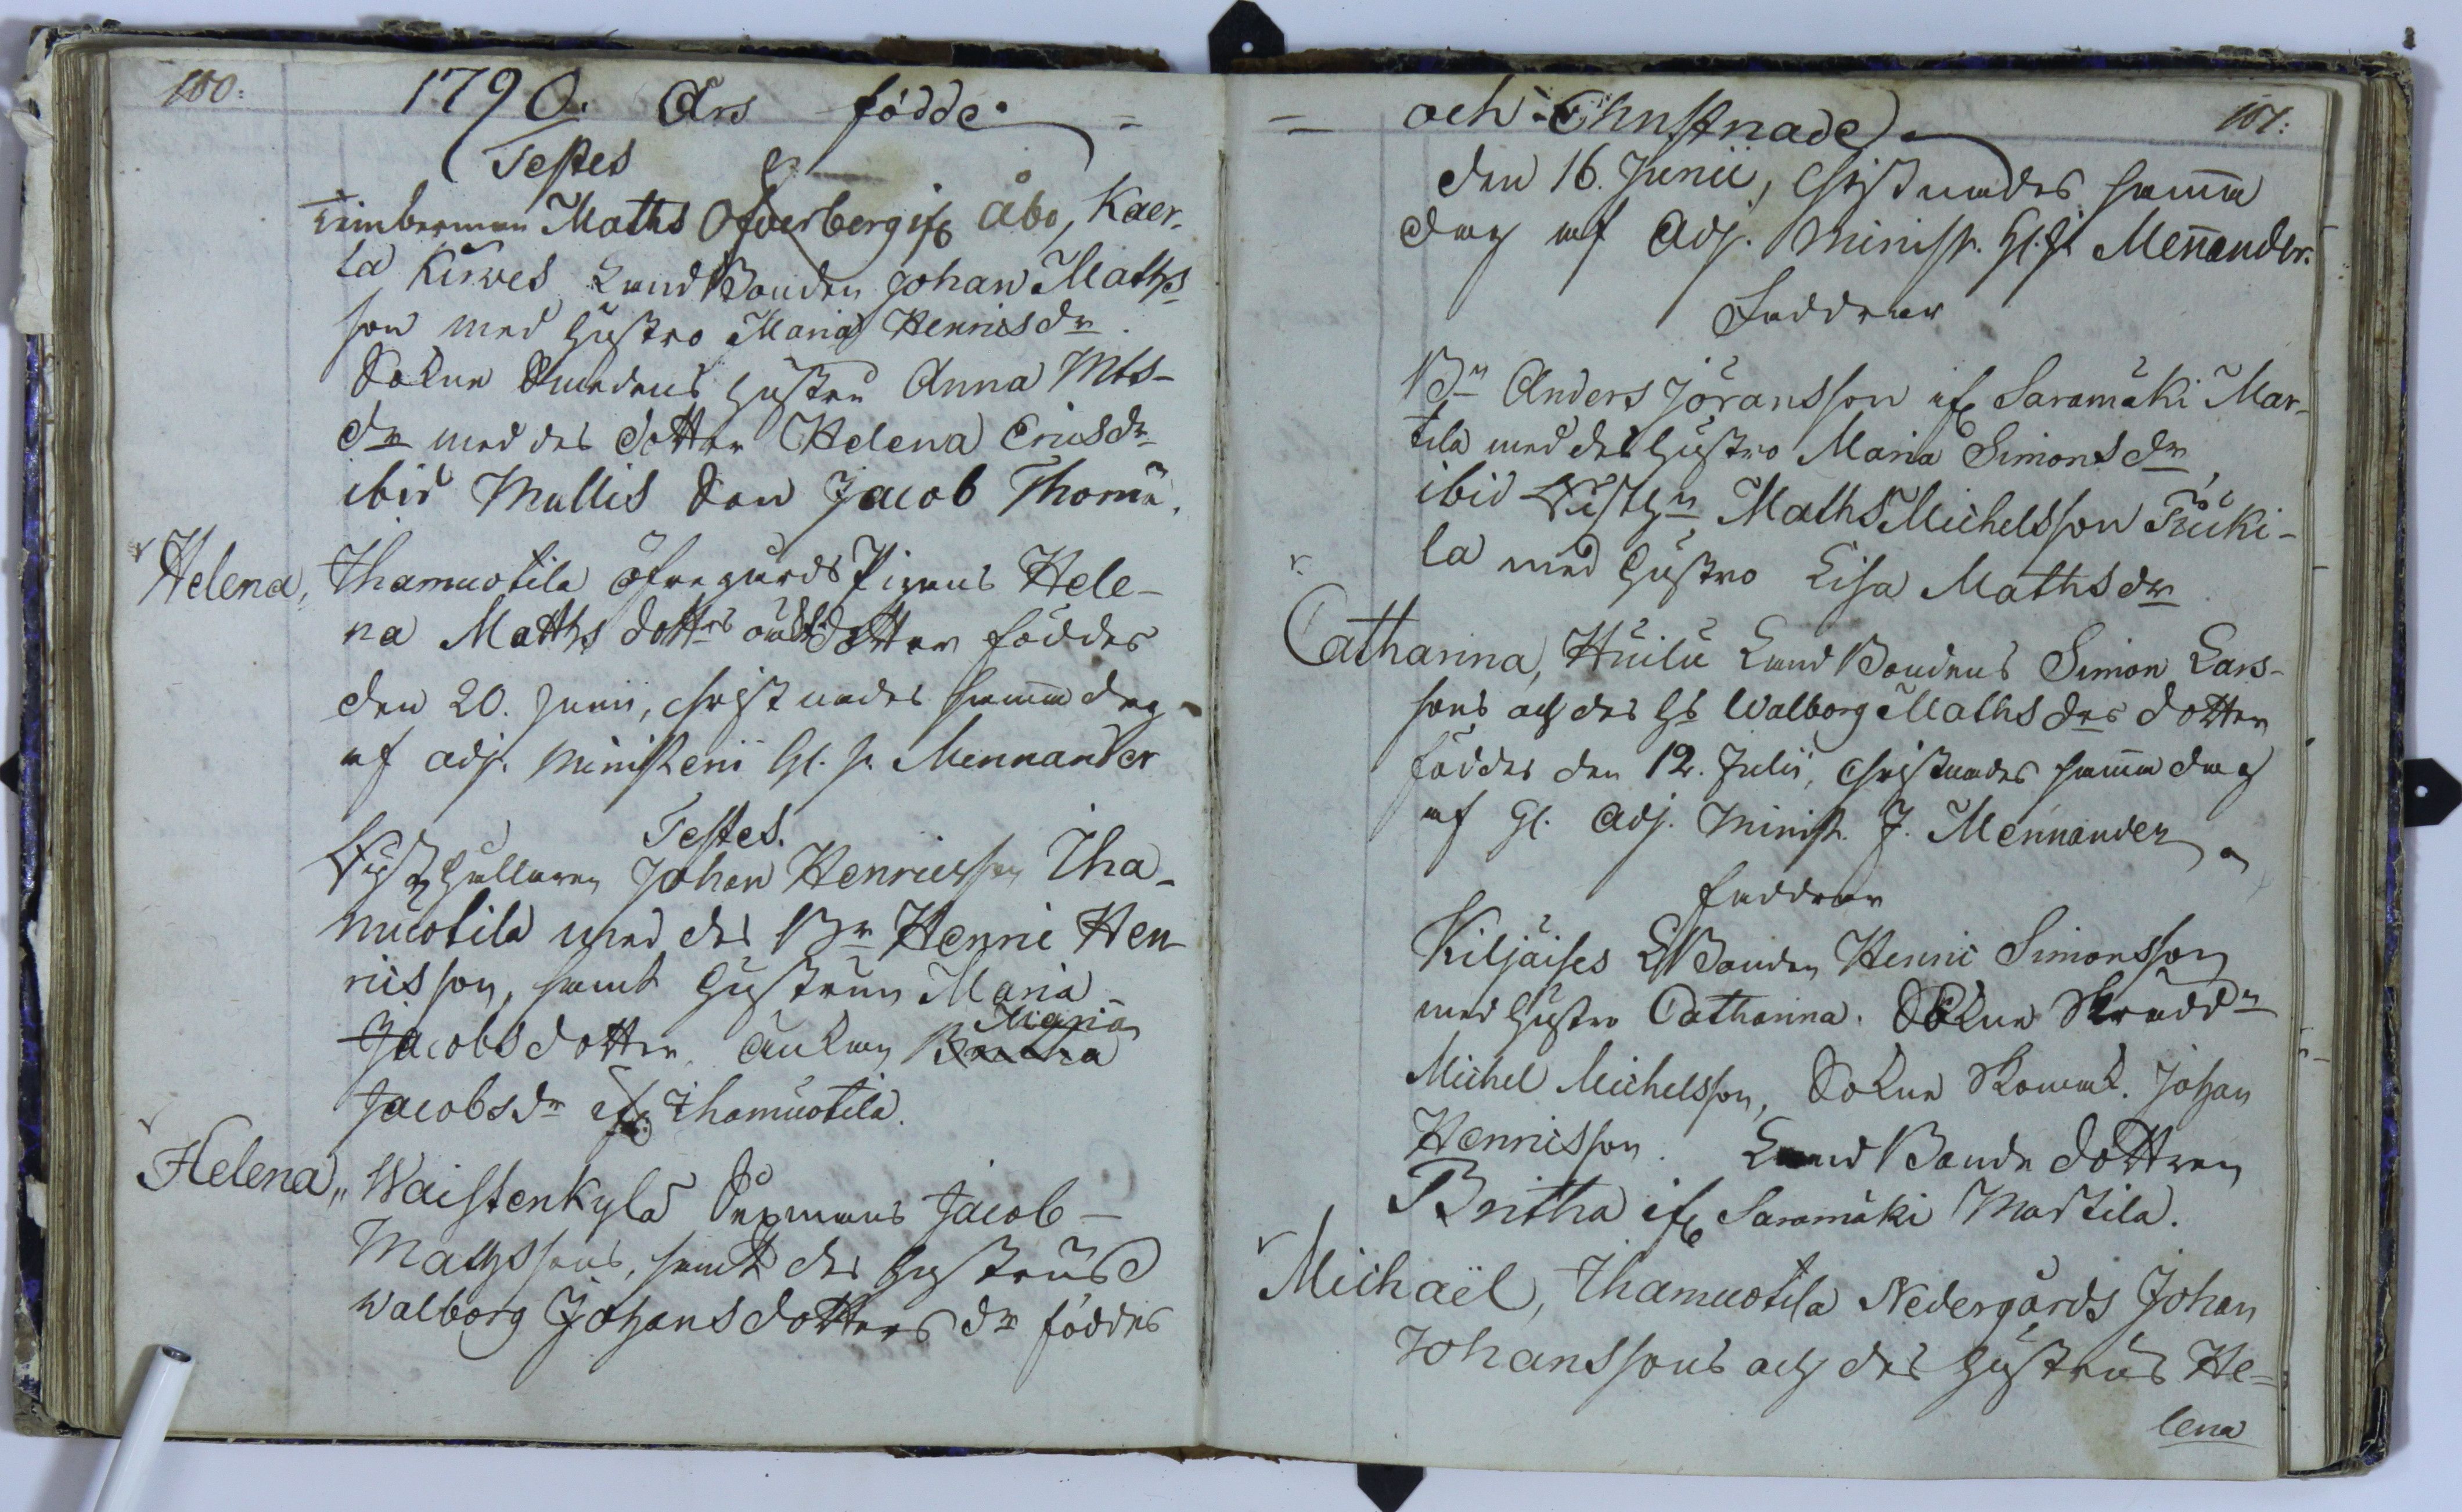 100:
1790. Års födde
Testes
Timberman Maths Ofverberg ifr. Åbo, Kaer-
la Kirves LandBonden Johan Maths
son med hustro Maria Henricsdr
Sokne Smedens hustru Anna Mts-
dr med des dotter Helena Ericsdr
ibid Mullis Son Jacob Thomæ.
Helena, Thamuotila öfregårds Pigans Hele-
na Matths dotters dotter föddes
den 20. Junii, christnades samma dag
af adj. ministerii Hl. J. Mennander
Testes.
Johan Henricsson Tha-
muotila med des Br Henric Hen-
ricsson, samt hustrun Maria
Jacobsdotter, änkan Maria
Jacobsdr ifr. Thamuotila.
Helena, Waistenkylä Sexmans Jacob
Mathssons, samt des hustrus
Walborg Johansdotters dr föddes
och Christnade
101:
den 16. Junii, christnades samma
dag af Adj. Minist. Hl. J. Mennander.
Faddrar
Bn Anders Jöransson ifr. Saramäki Mar-
tila med des hustro Maria Simonsdr
ibid Maths Michelsson Tuki-
la med hustro Lisa Mathsdr
Catharina, Huilu LandBondens Simon Lars-
sons och des hs Walborg Mathsdrs dotter
föddes den 12. Julii, christnades samma dag
af Hl. Adj. Minist. J. Mennander
faddrar
Kiljaises LBonden Henric Simonsson
med hustro Catharina. Sokne Skräddn
Michel Michelsson, Sokne Skomak. Johan
Henricsson. Land Bonde dottren
Britha ifr. Saramäki Martila.
Michaël, Thamuotila Nedergårds Johan
Johanssons och des hustrus He-
lena